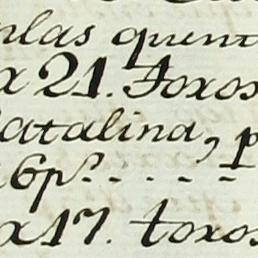 nlas quent
x 21. Toxos
Catalina, p
16p.^s - - - -
x 17. toxos